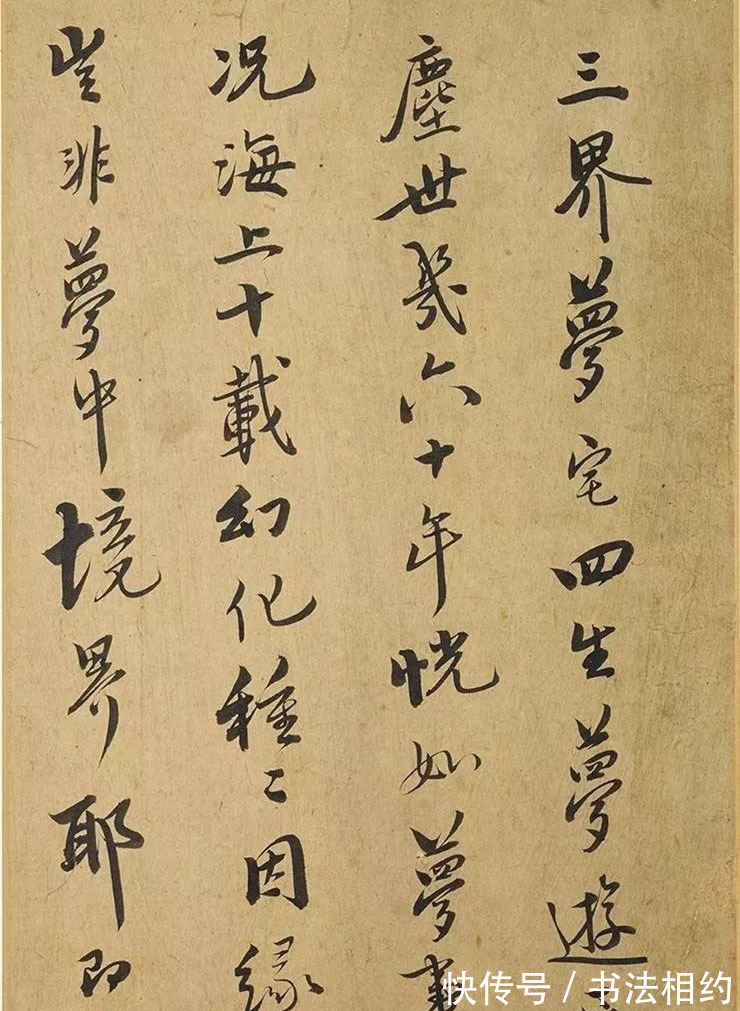 三界夢宅四生夢遊
塵世幾六十年恍如夢事
况海上十載幻化種〻因緣
豈非夢中境界耶即
快传号/书法相约